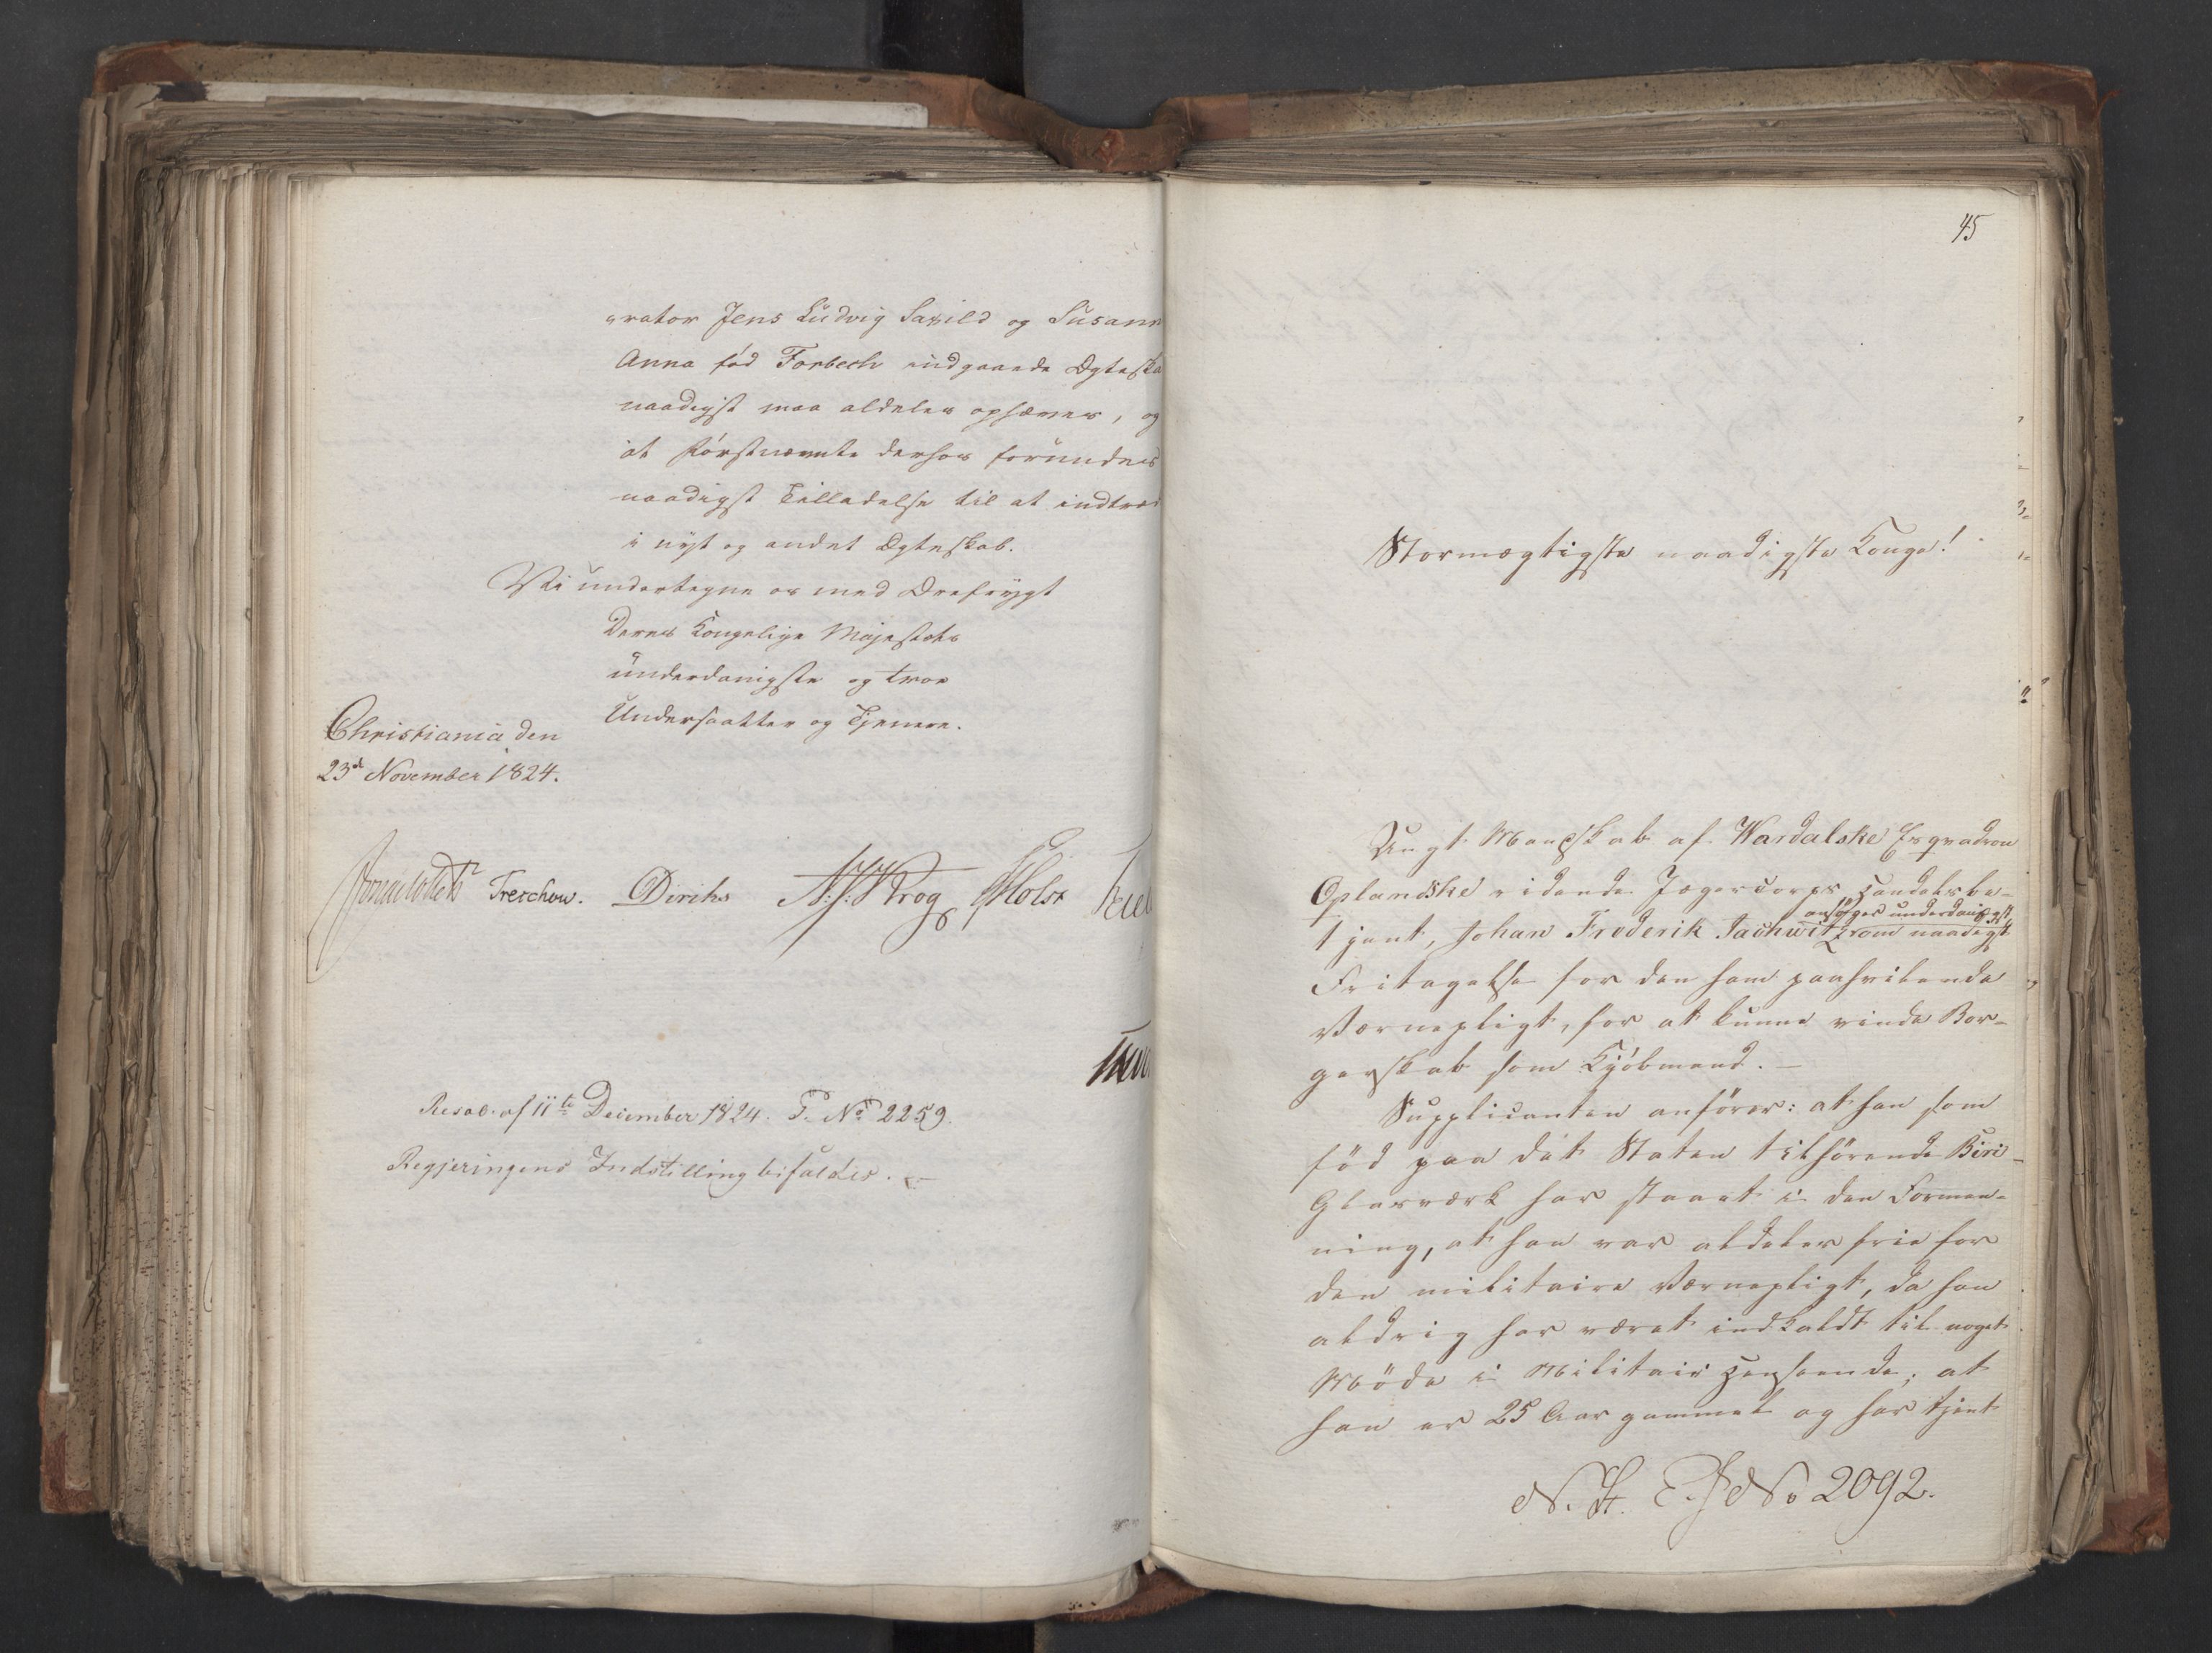 „rator Jens Ludvig Saxild og Susann
Anna fød Forbech indgaaede Ægteska
naadigst maa aldeles ophæves, og
at Førstnævnte derhos forundes
naadigst Tilladelse til at indtræd
i nyt og andet Ægteskab.
Vi undertegne os med Ærefrygt
Deres Kongelige Majestæts
underdanigste og troe
Undersaatter og Tjenere.
Christiania den
23d November 1824.
Treschow. Diriks N. J. Krog Holst
Resol. af 11te December 1824. P. No 2259.
Regjeringens Indstilling bifaldes.
45
Stormægtigste naadigste Konge!
Ungt Mandskab af Wardalske Esqvadron
Oplandske ridende Jægercorps, Handelsbe-
ansøger underdanigst
tjent, Johan Frederik Tachwitz om naadigst
Fritagelse for den ham paahvilende
Værnepligt, for at kunne vinde Bor-
gerskab som Kjøbmand. —
Supplicanten anfører: at han som
fød paa det Staten tilhørende Biri-
Glasværk har staaet i den Formee-
ning, at han var aldeles frie for
den militaire Værnepligt, da han
aldrig har været indkaldt til noget
Møde i Militair Henseende; at
han er 25 Aar gammel og har tjent
No 2092.